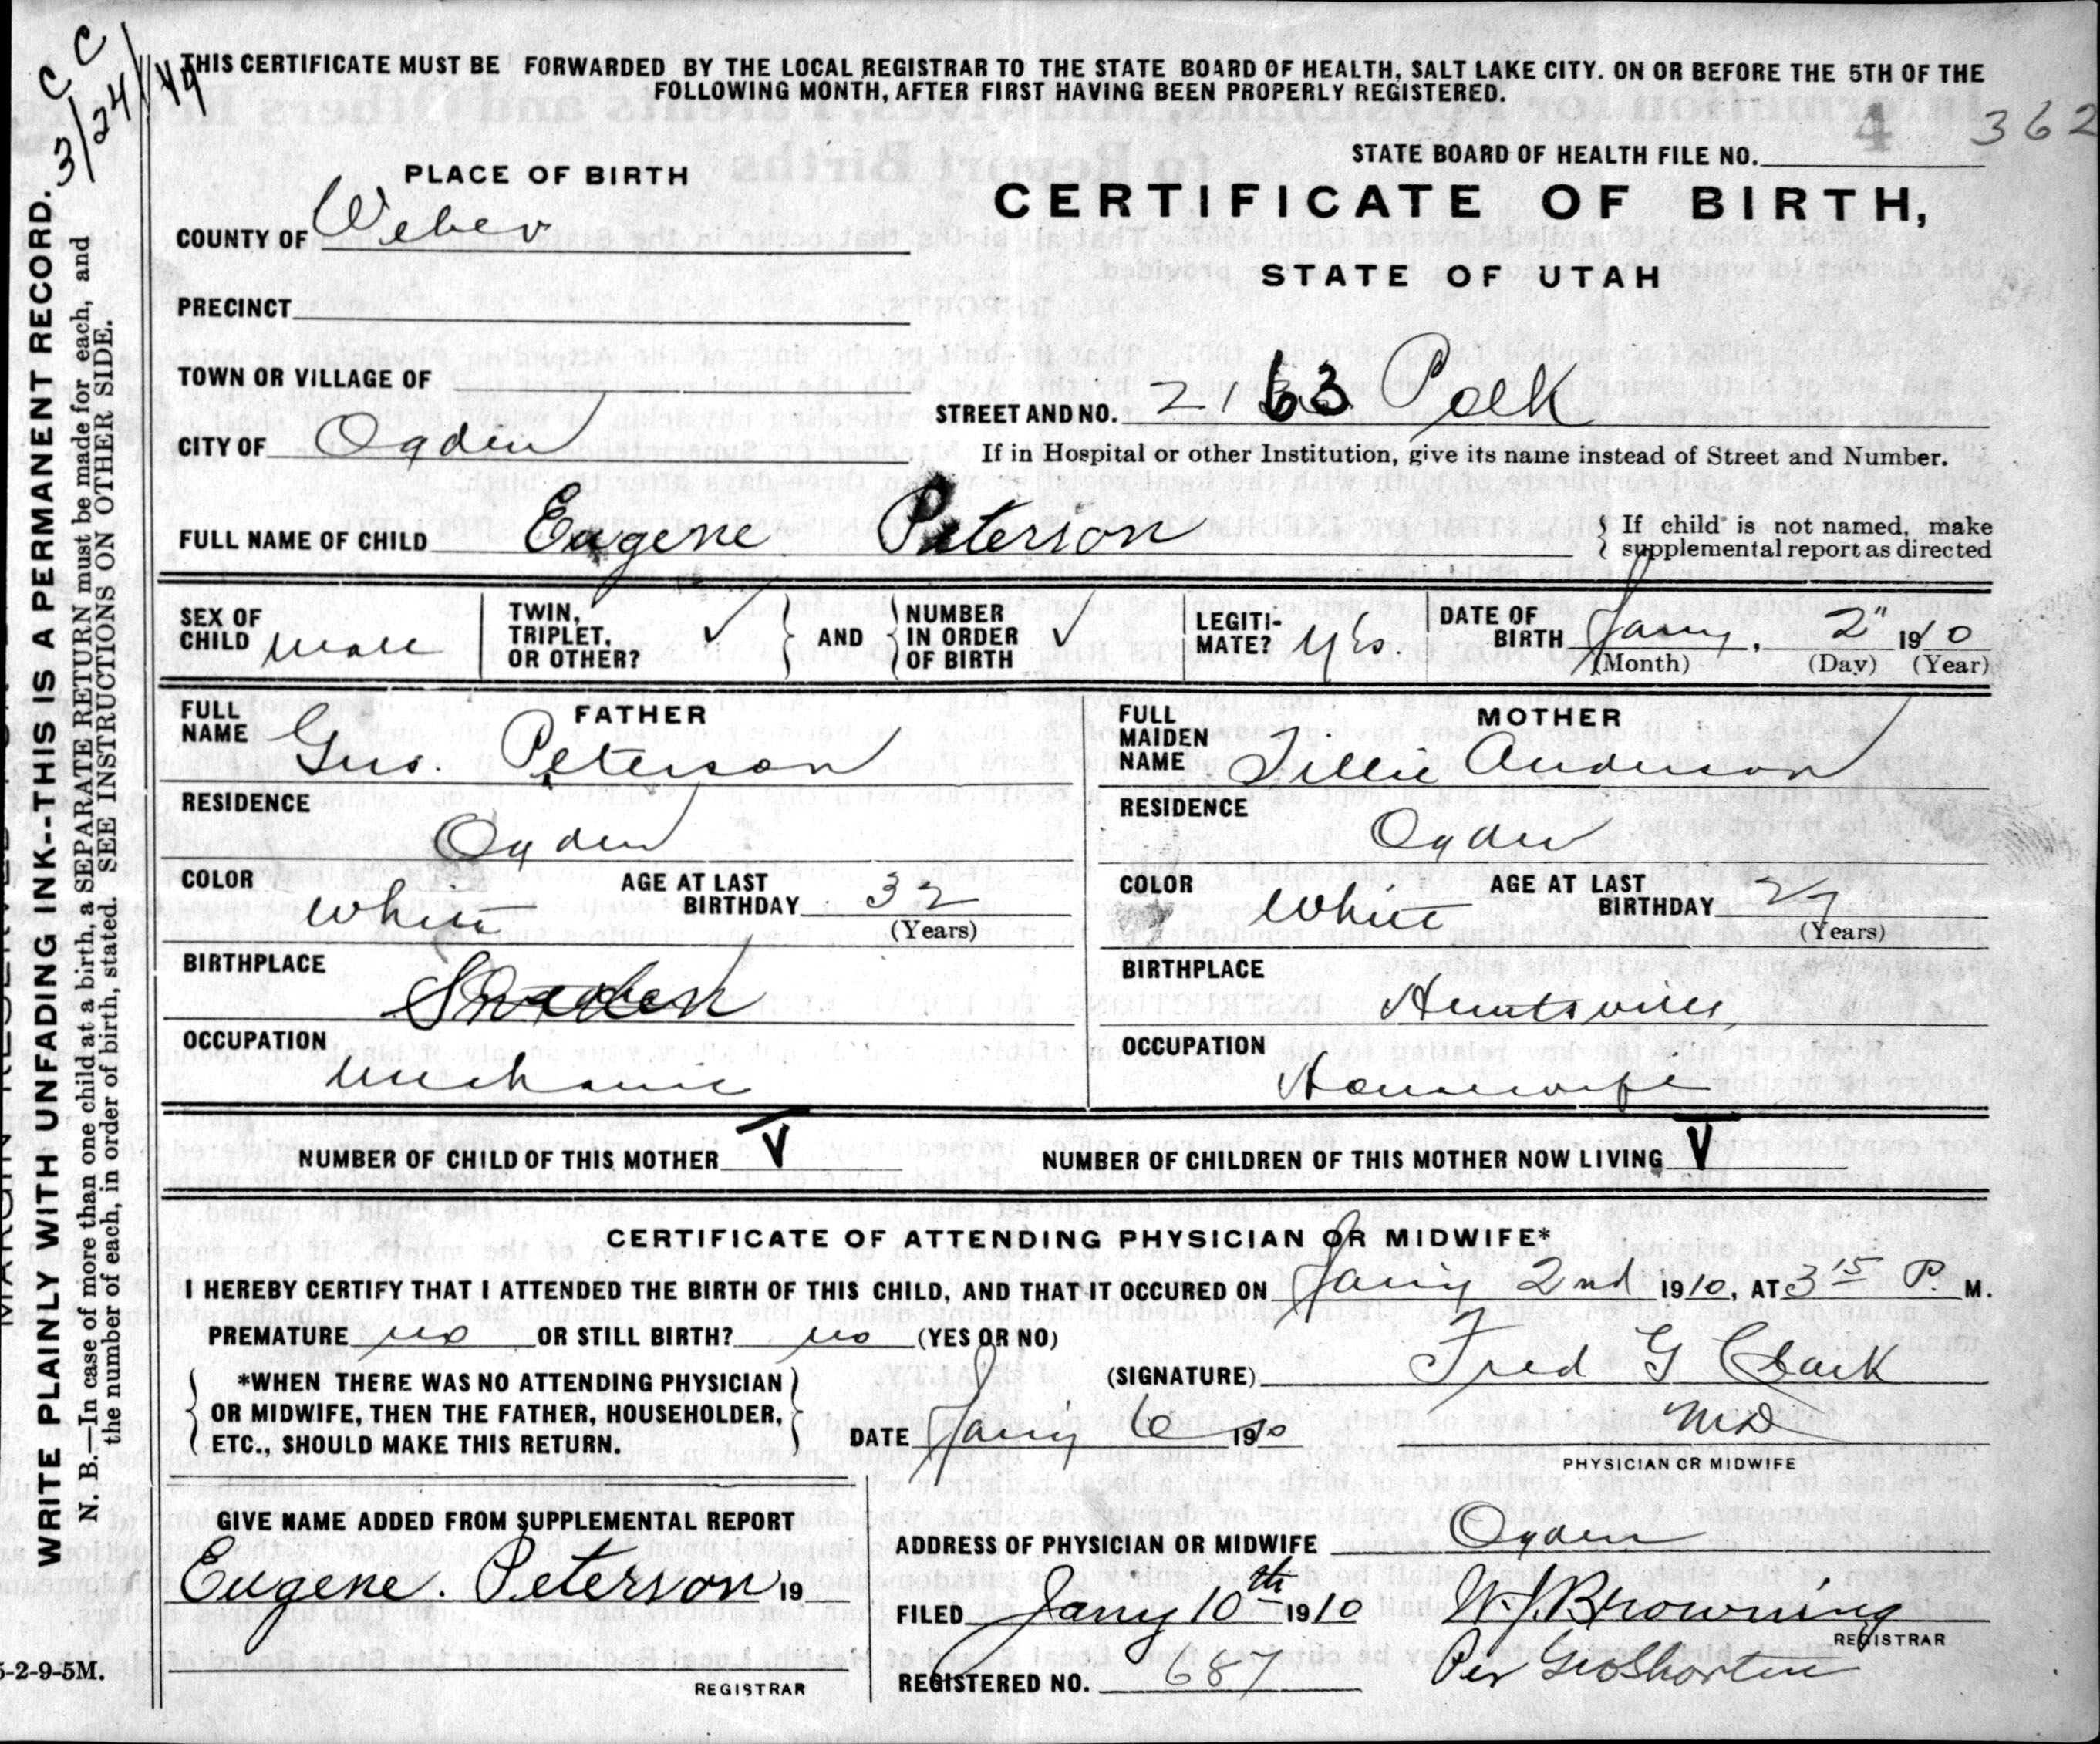 C C
3/24/49
THIS CERTIFICATE MUST BE FORWARDED BY THE LOCAL REGISTRAR TO THE STATE BOARD OF HEALTH, SALT LAKE CITY. ON OR BEFORE THE 5TH OF THE
FOLLOWING MONTH, AFTER FIRST HAVING BEEN PROPERLY REGISTERED.
4 362
STATE BOARD OF HEALTH FILE NO.
PLACE OF BIRTH
CERTIFICATE OF BIRTH,
COUNTY OF Weber
STATE OF UTAH
PRECINCT
TOWN OR VILLAGE OF
STREET AND NO. 2163 Polk
CITY OF Ogden
If in Hospital or other Institution, give its name instead of Street and Number.
FULL NAME OF CHILD Eugene Peterson
If child is not named, make
supplemental report as directed
SEX OF CHILD Male
TWIN, TRIPLET, OR OTHER? ✓
AND NUMBER IN ORDER OF BIRTH ✓
LEGITI-MATE? Yes.
DATE OF BIRTH Jany, 2" 1910
(Month) (Day) (Year)
FATHER
FULL NAME Gus. Peterson
RESIDENCE Ogden
COLOR White AGE AT LAST BIRTHDAY 32
(Years)
BIRTHPLACE
OCCUPATION Mechanic
MOTHER
FULL MAIDEN NAME Tillie Anderson
RESIDENCE Ogden
COLOR White AGE AT LAST BIRTHDAY 27
(Years)
BIRTHPLACE Huntsville,
OCCUPATION Housewife
NUMBER OF CHILD OF THIS MOTHER V NUMBER OF CHILDREN OF THIS MOTHER NOW LIVING V
CERTIFICATE OF ATTENDING PHYSICIAN OR MIDWIFE*
I HEREBY CERTIFY THAT I ATTENDED THE BIRTH OF THIS CHILD, AND THAT IT OCCURED ON Jany 2nd 1910, AT 3 15 P. M.
PREMATURE no OR STILL BIRTH? no (YES OR NO)
*WHEN THERE WAS NO ATTENDING PHYSICIAN
OR MIDWIFE, THEN THE FATHER, HOUSEHOLDER,
ETC., SHOULD MAKE THIS RETURN.
(SIGNATURE) Fred G Clark
MD
DATE Jany 6 1910
PHYSICIAN OR MIDWIFE
GIVE NAME ADDED FROM SUPPLEMENTAL REPORT
Eugene. Peterson 19
REGISTRAR
ADDRESS OF PHYSICIAN OR MIDWIFE Ogden
FILED Jany 10th 1910 W. J. Browning
REGISTRAR
REGISTERED NO. 687 Per
WRITE PLAINLY WITH UNFADING INK--THIS IS A PERMANENT RECORD.
N. B.—In case of more than one child at a birth, a SEPARATE RETURN must be made for each, and
the number of each, in order of birth, stated. SEE INSTRUCTIONS ON OTHER SIDE.
5-2-9-5M.